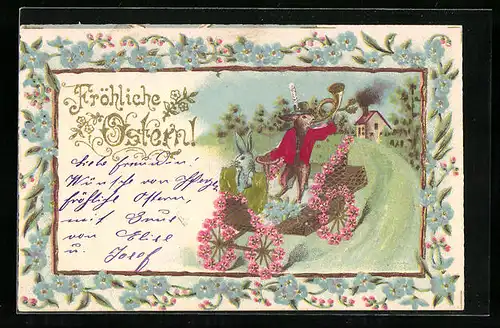 Fröhliche
Ostern!
Liebe Freundin!
Wünsche von Herzen
fröhliche Ostern,
mit Gruß
von Elise
u. Josef